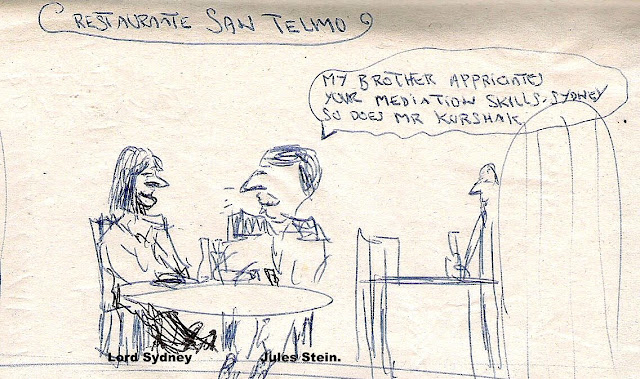 RESTAURANTE SAN TELMO
MY BROTHER APPRICIATES
YOUR MEDIATION SKILLS-SYDNEY
SO DOES MR KORSHAK
Lord Sydney
Jules Stein.